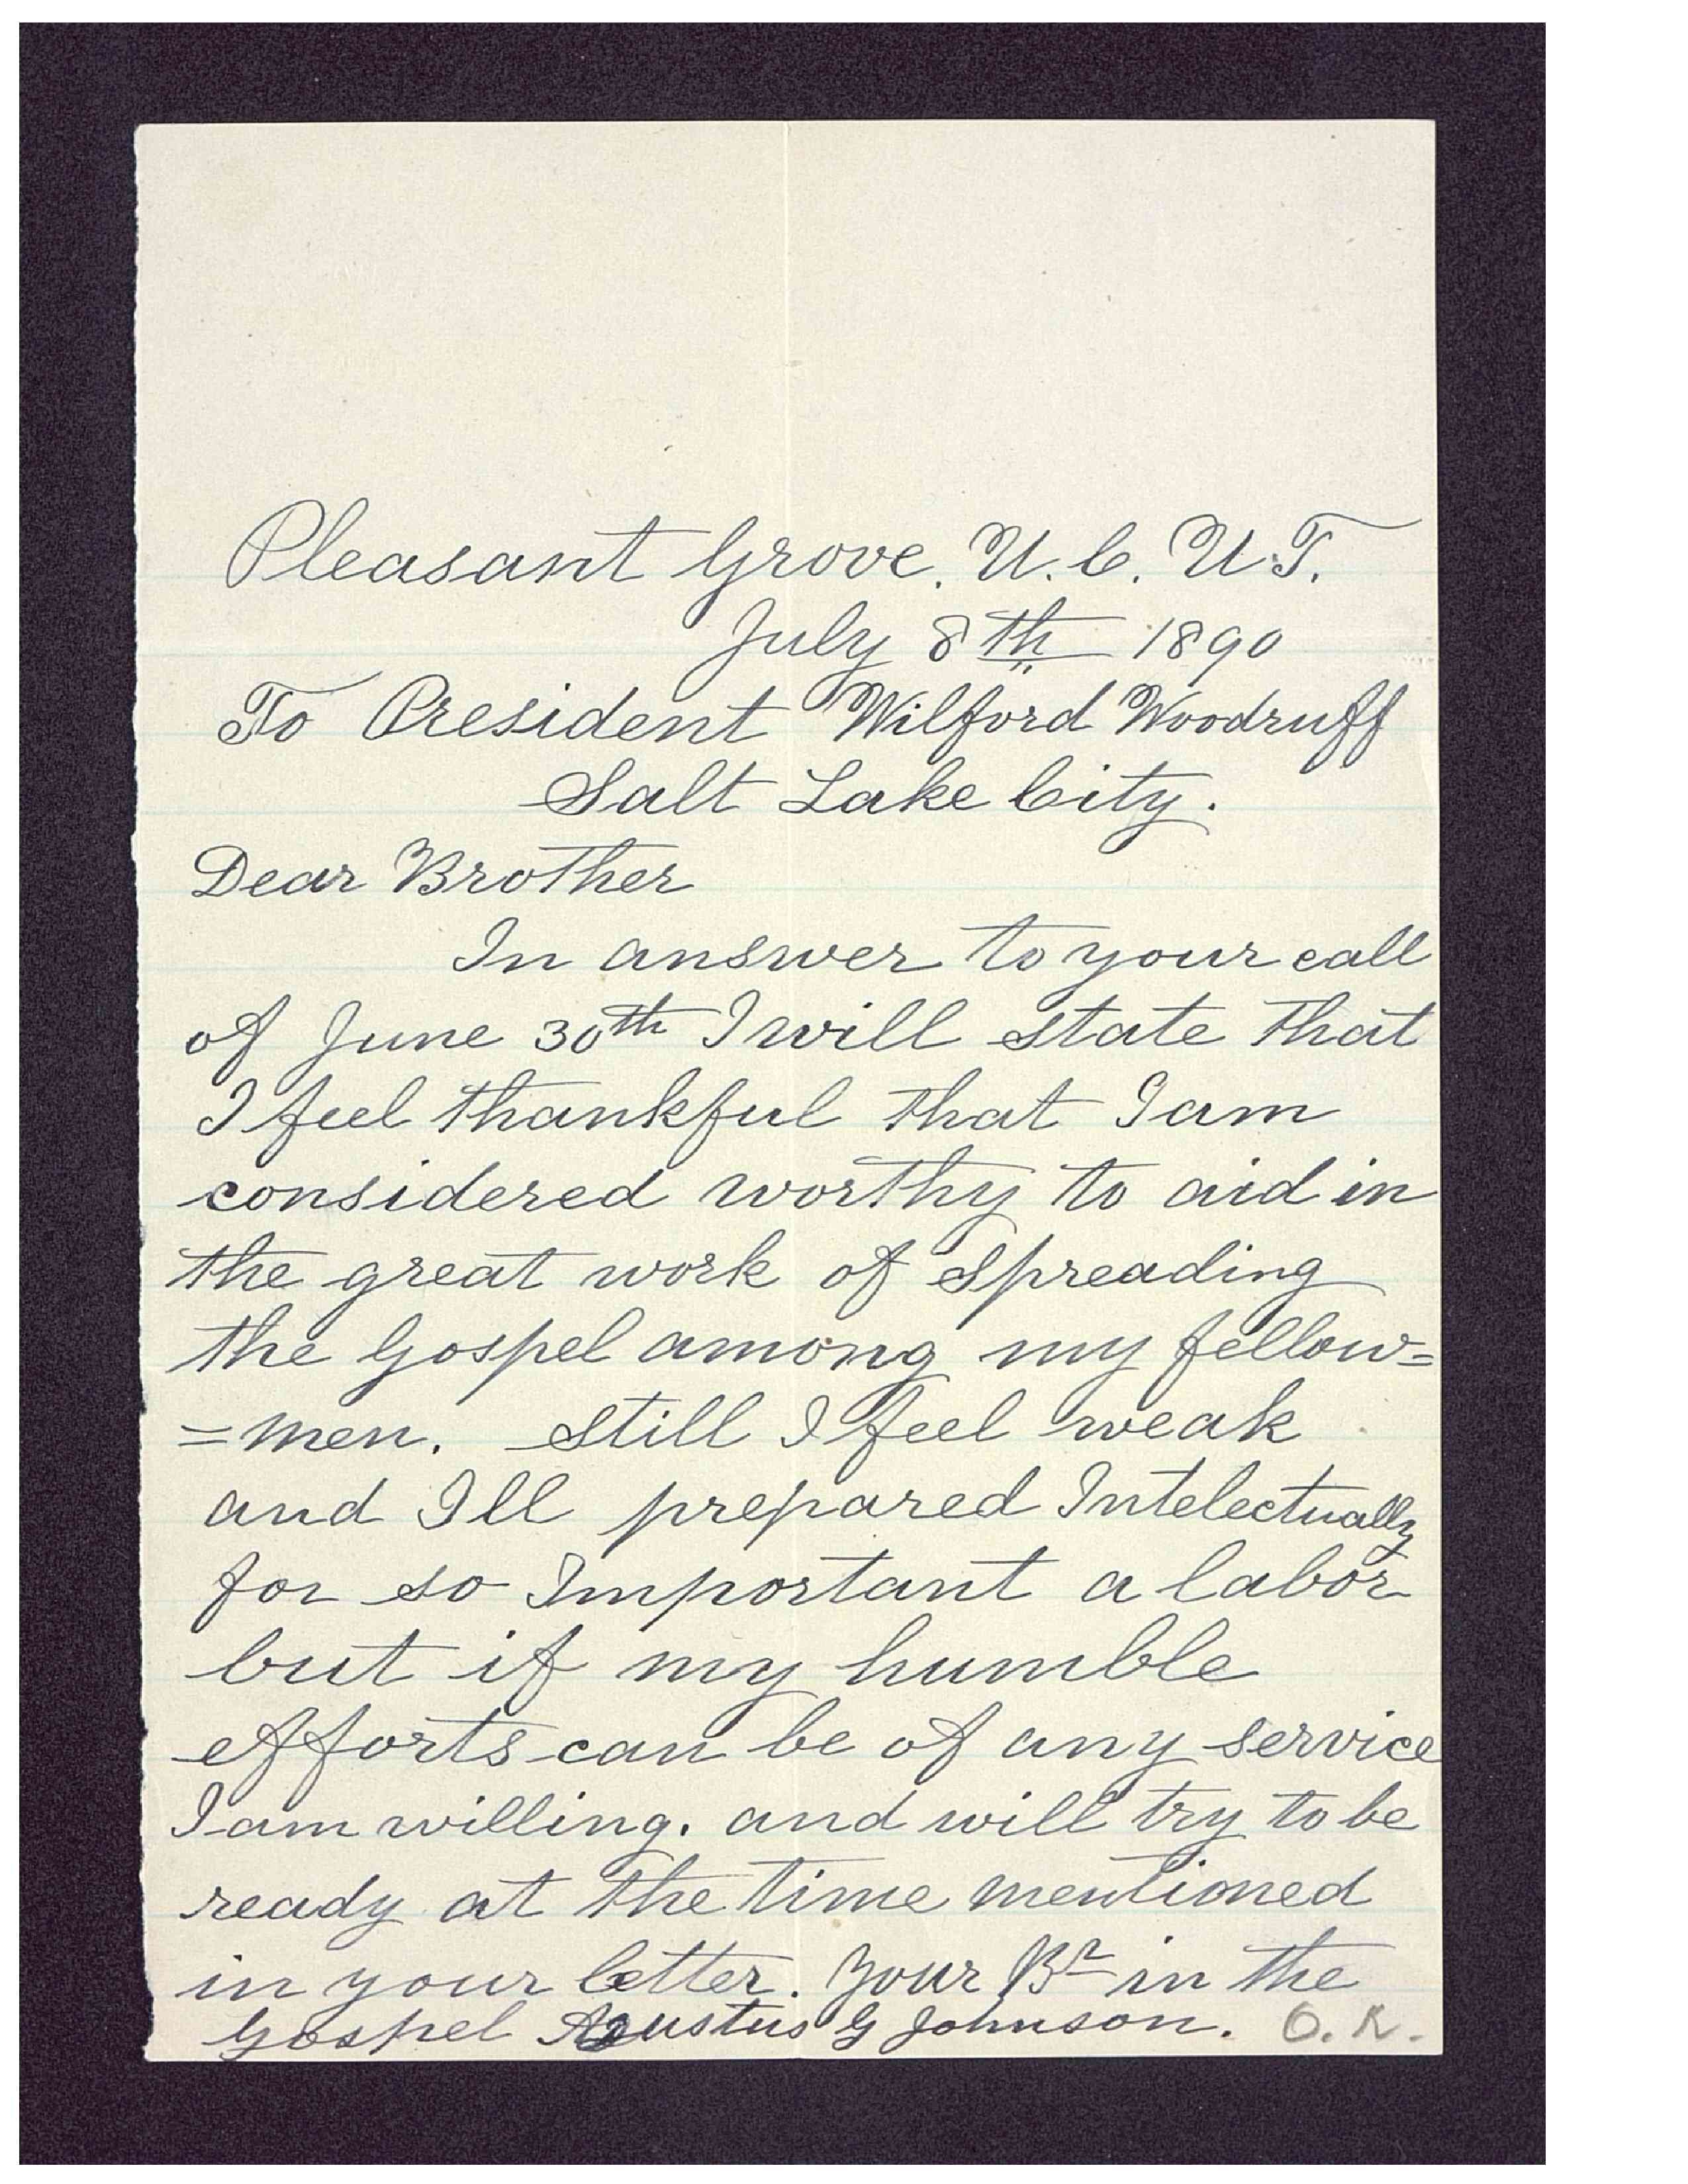 Pleasant Grove. U. C. U.T.
July 8th 1890
To President Wilford Woodruff
Salt Lake City.
Dear Brother
In answer to your call
of June 30th I will state that
I feel thankful that I am
considered worthy to aid in
the great work of spreading
the Gospel among my fellow=
=men. Still I feel weak
and Ill prepared Intelectually
for so Important a labor
but if my humble
efforts can be of any service
I am willing. and will try to be
ready at the time mentioned
in your letter. Your Br in the
Gospel G Johnson. O.K.